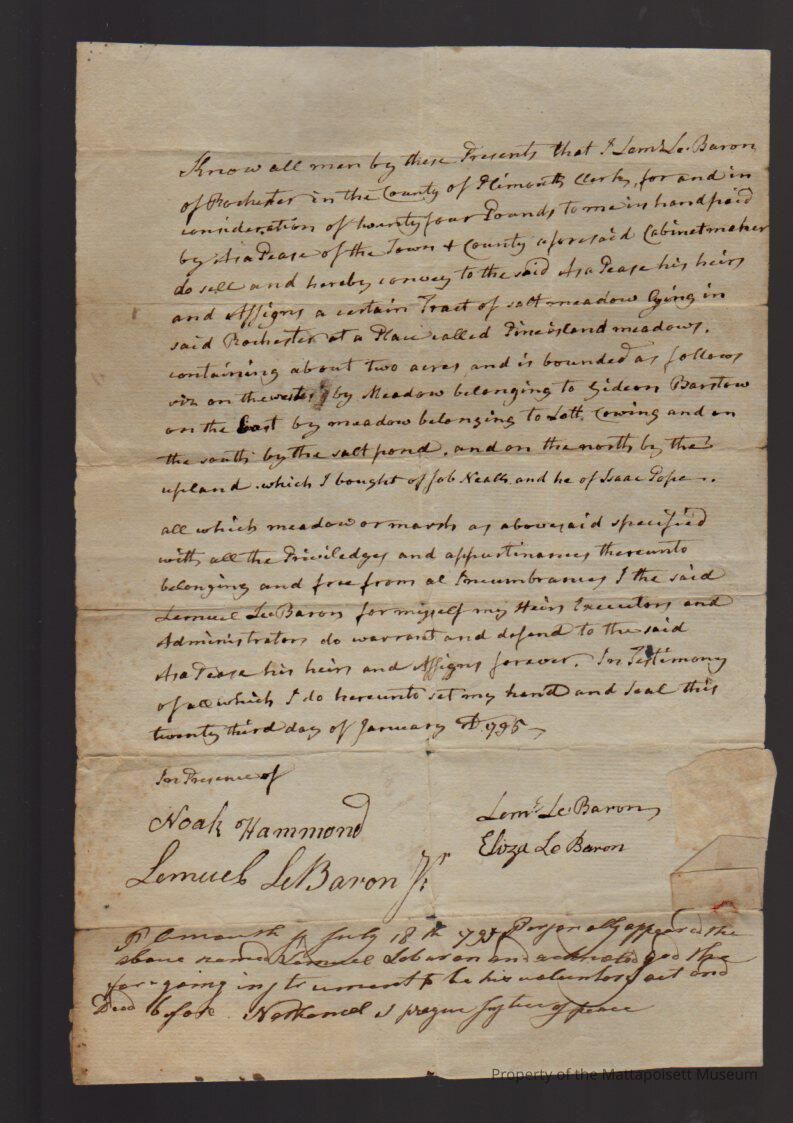 Know all men by these Presents that I Leml. Le Baron
of Rochester in the County of Plimouth Clerk, for and in
consideration of twenty four Pounds to me in hand paid
by Asa Pease of the Town & County aforesaid Cabinetmaker
do sell and hereby convey to the said Asa Pease his heirs
and Assigns a certain Tract of salt meadow lying in
said Rochester at a Place called Pineisland meadows,
containing about two acres and is bounded as follows
viz on the by Meadow belonging to Gideon Barstow
on the East by meadow belonging to Lott. Cowing and on
the south by the salt pond, and on the north by the
upland which I bought of Job Neal and he of Isaac Pope.
all which meadow or marsh as abovesaid specified
with all the Priviledges and appurtinances thereunto
belonging and free from al Incumbrances I the said
Lemuel Le Baron for myself my Heirs Executors and
Administrators do warrant and defend to the said
Asa Pease his heirs and Assigns forever. In Testimony
of all which I do hereunto set my hand and Seal this
twenty third day of January AD. 1795
In Presence of
Noah Hammond
Leml. Le Baron
Lemuel LeBaron Jr.
Eliza Le Baron
Plimouth July 18th 1795 Personally appeared the
above named Lemuel Lebaron and acknowledged the
for-going instrument to be his voluntary act and
Deed before Nathaniel Sprague Justice of peace
Property of the Mattapoisett Museum